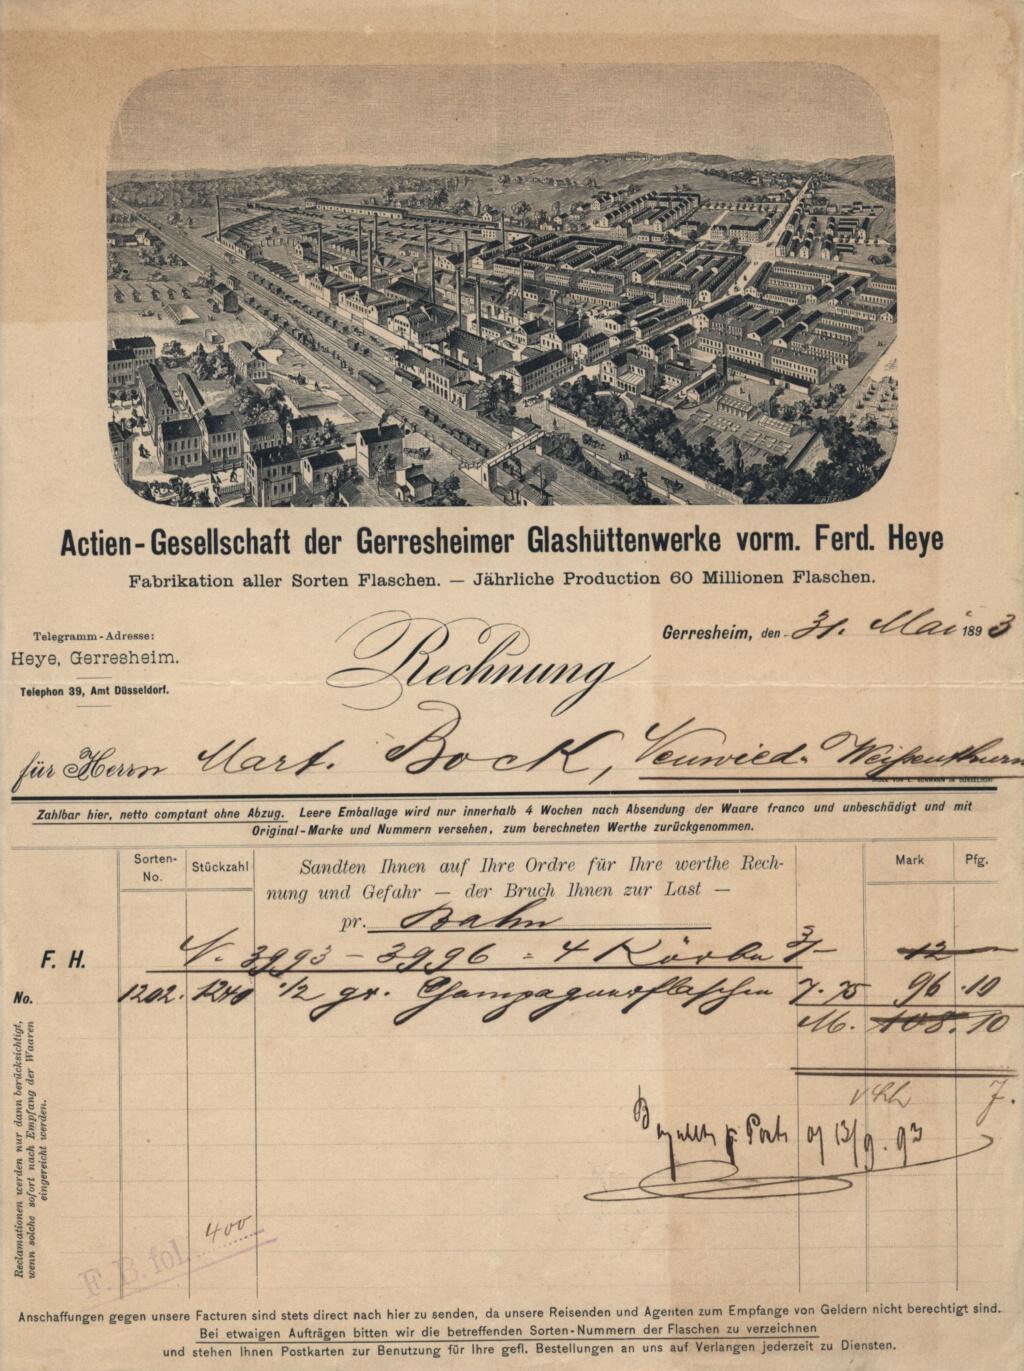 Actien-Gesellschaft der Gerresheimer Glashüttenwerke vorm. Ferd. Heye
Fabrikation aller Sorten Flaschen. — Jährliche Production 60 Millionen Flaschen.
Telegramm-Adresse:
Heye, Gerresheim.
Telephon 39, Amt Düsseldorf.
Rechnung
Gerresheim, den 31. Mai 1893
für Herrn Mart. Bock, Neuwied. Weißenthurm
Zahlbar hier, netto comptant ohne Abzug. Leere Emballage wird nur innerhalb 4 Wochen nach Absendung der Waare franco und unbeschädigt und mit
Original-Marke und Nummern versehen, zum berechneten Werthe zurückgenommen.
Sorten-No.
Stückzahl
Sandten Ihnen auf Ihre Ordre für Ihre werthe Rech-
nung und Gefahr — der Bruch Ihnen zur Last —
pr. Bahn
Mark
Pfg.
F. H.
N. 3993 – 3996 = 4 Körbe 3/- 12
No.
1202. 1240 1/2 gr. Champagnerflaschen 7.75 96.10
M. 108.10
Reclamationen werden nur dann berücksichtigt,
wenn solche sofort nach Empfang der Waaren
eingereicht werden.
13/9.93
F. B. fol. 400
Anschaffungen gegen unsere Facturen sind stets direct nach hier zu senden, da unsere Reisenden und Agenten zum Empfange von Geldern nicht berechtigt sind.
Bei etwaigen Aufträgen bitten wir die betreffenden Sorten-Nummern der Flaschen zu verzeichnen
und stehen Ihnen Postkarten zur Benutzung für Ihre gefl. Bestellungen an uns auf Verlangen jederzeit zu Diensten.